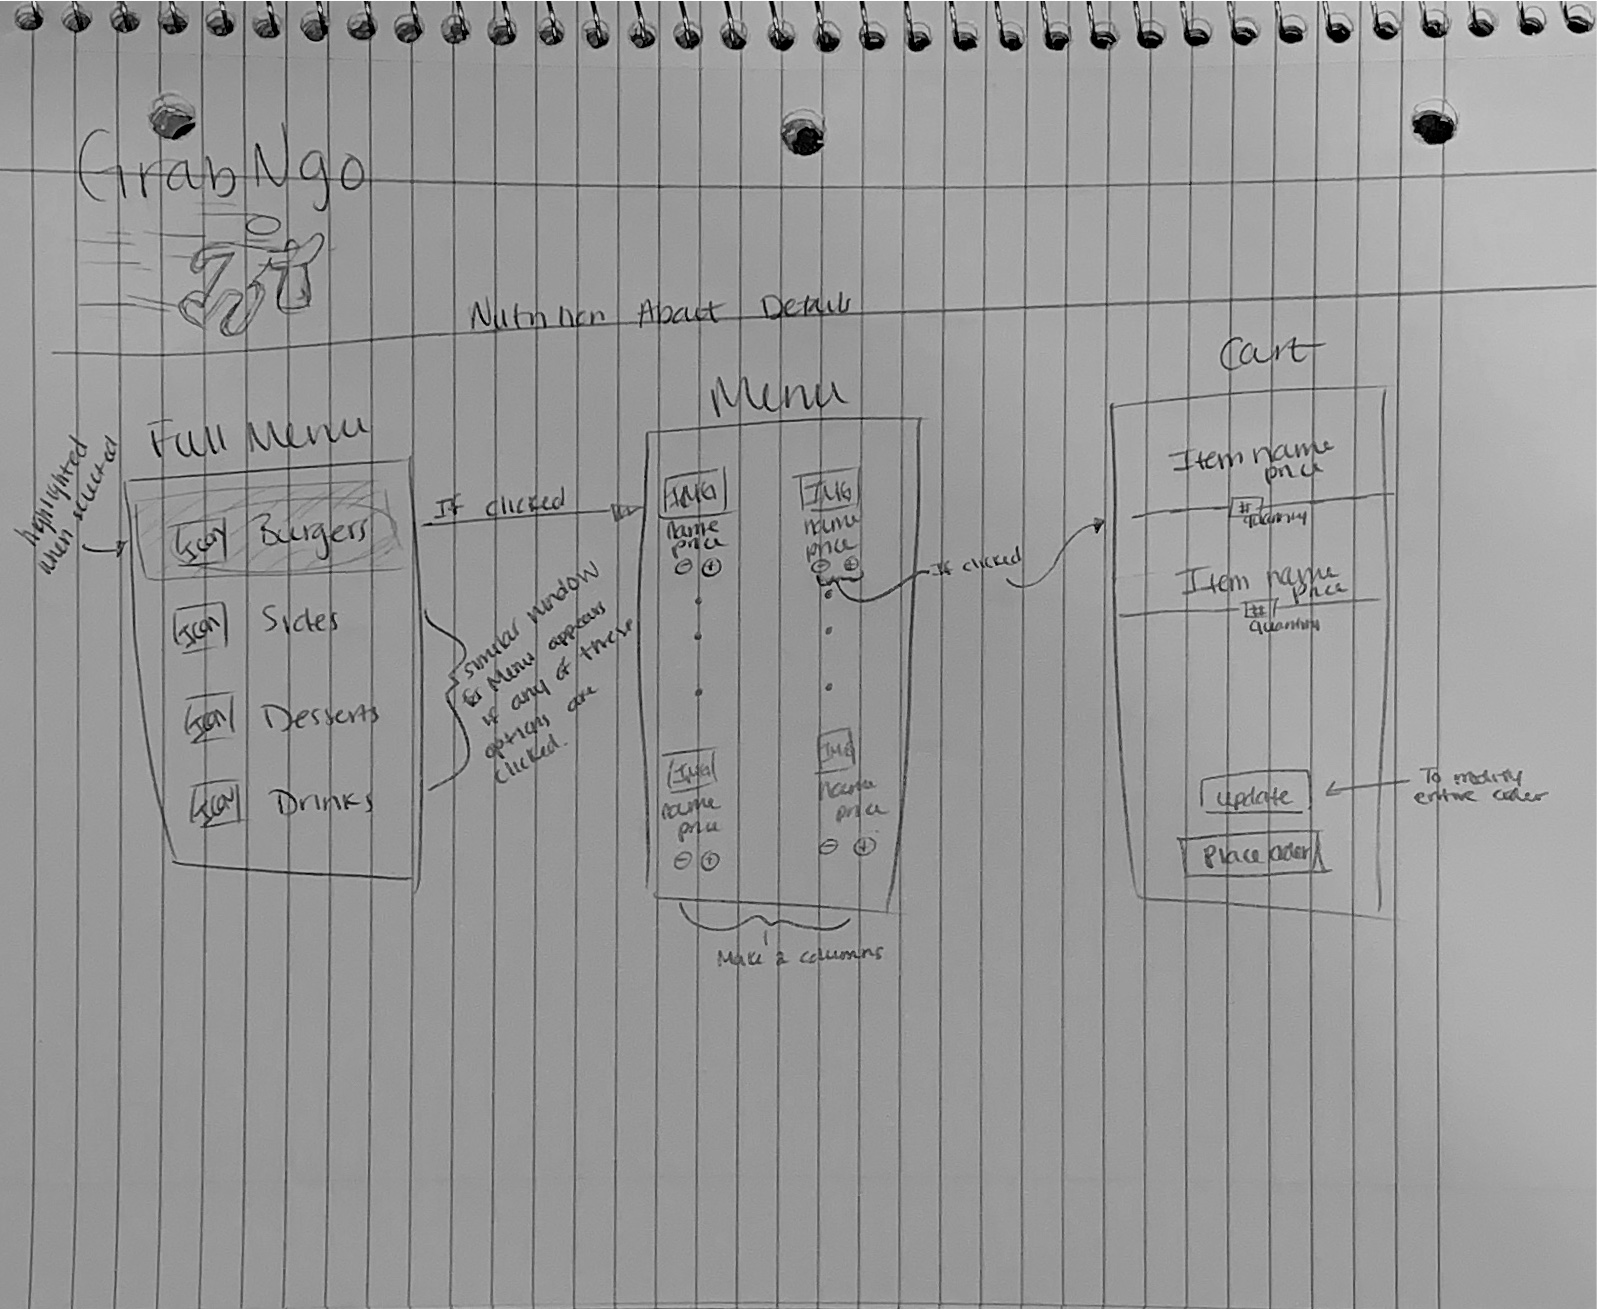 GrabNgo
Nutrition About Details
Full Menu
highlighted
when selected
Icon Burgers
Icon Sides
Icon Desserts
Icon Drinks
If clicked
similar window
for Menu appears
if any of these
options are
clicked.
Menu
IMG IMG
name name
price price
- + - +
IMG IMG
name name
price price
- + - +
Make 2 columns
If clicked
Cart
Item name
price
#
quantity
Item name
price
#
quantity
update
To modify
entire order
Place order